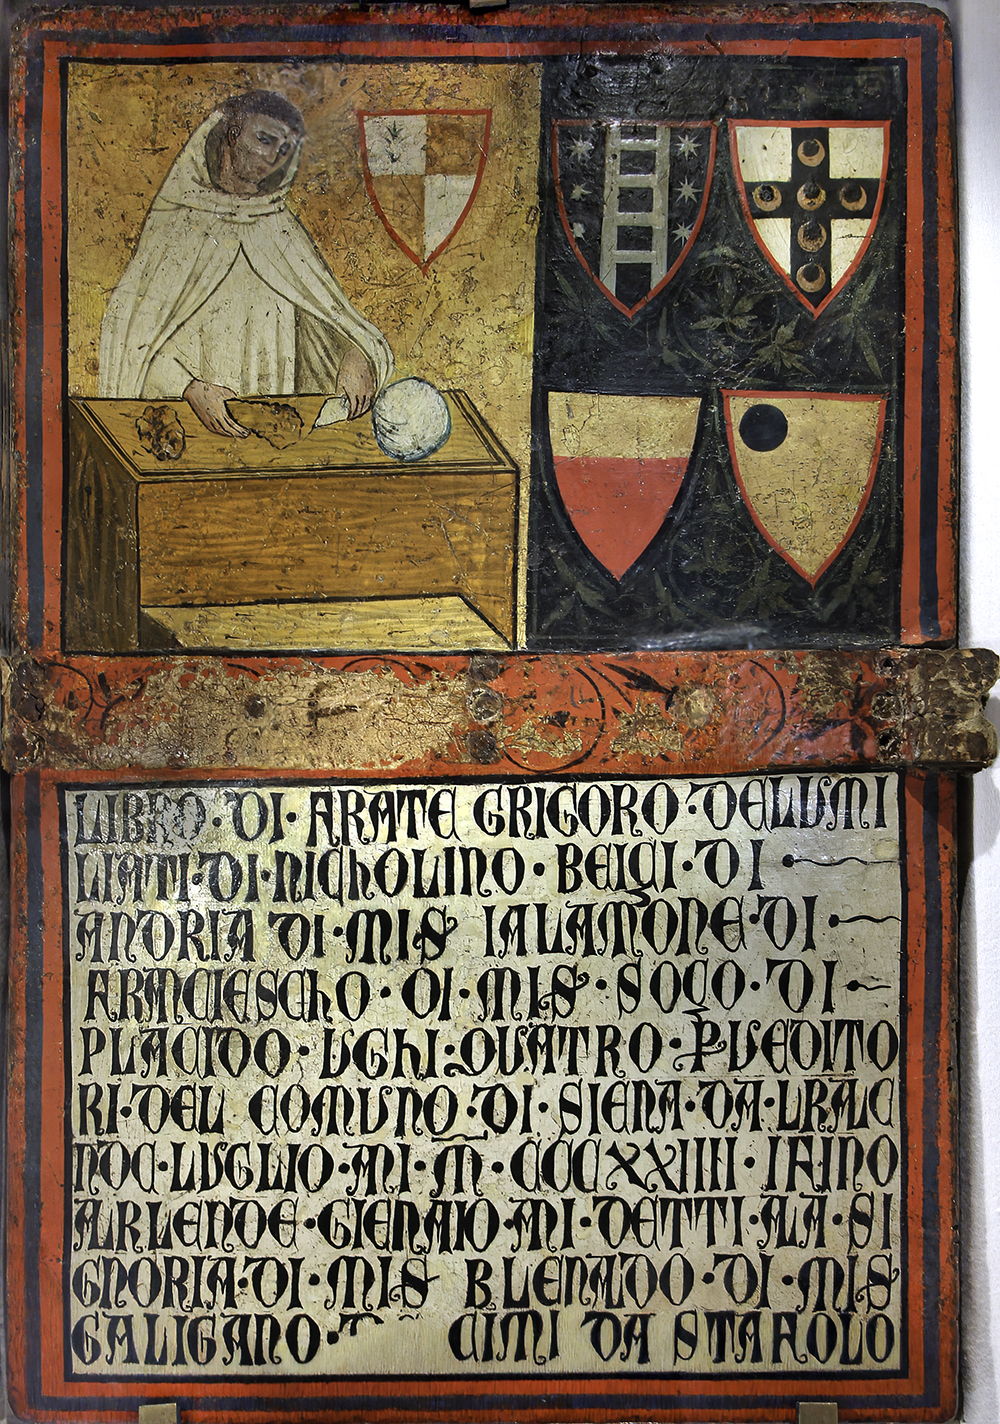 LIBRO · DI · FRATE GRIGORO · DELUMI
LIATI · DI · NICHOLINO · BEIÇI · DI
ANDRIA DI · MIS IALAMONE · DI
FRANCIESCHO · DI · MIS · SOÇO · DI
PLACIDO · UGHI : QUATRO · PUEDITO
RI · DEL COMUNO · DI · SIENA · DA · LRALC
NDE · LUGLIO · ANI · M · CCCXXIIII · IFINO
ALRLENDE · GIENAIO · ANI · DETTI · ALA · SI
GNORIA · DI · MIS BLENADO · DI · MIS
GALIGANO · CIMI DA STAFOLO